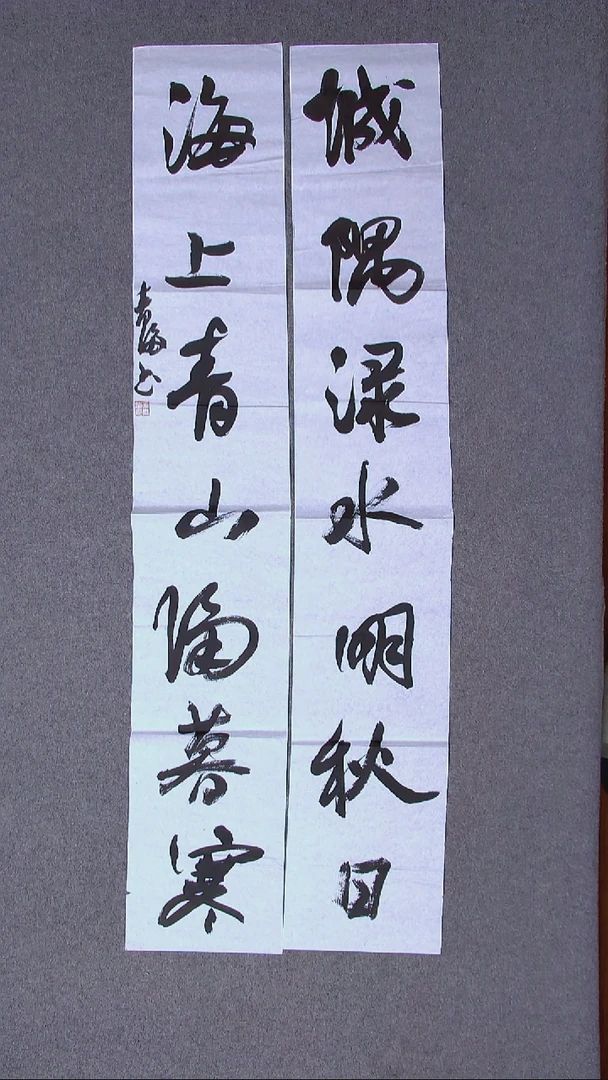 城隅渌水明秋日
海上青山隔暮寒